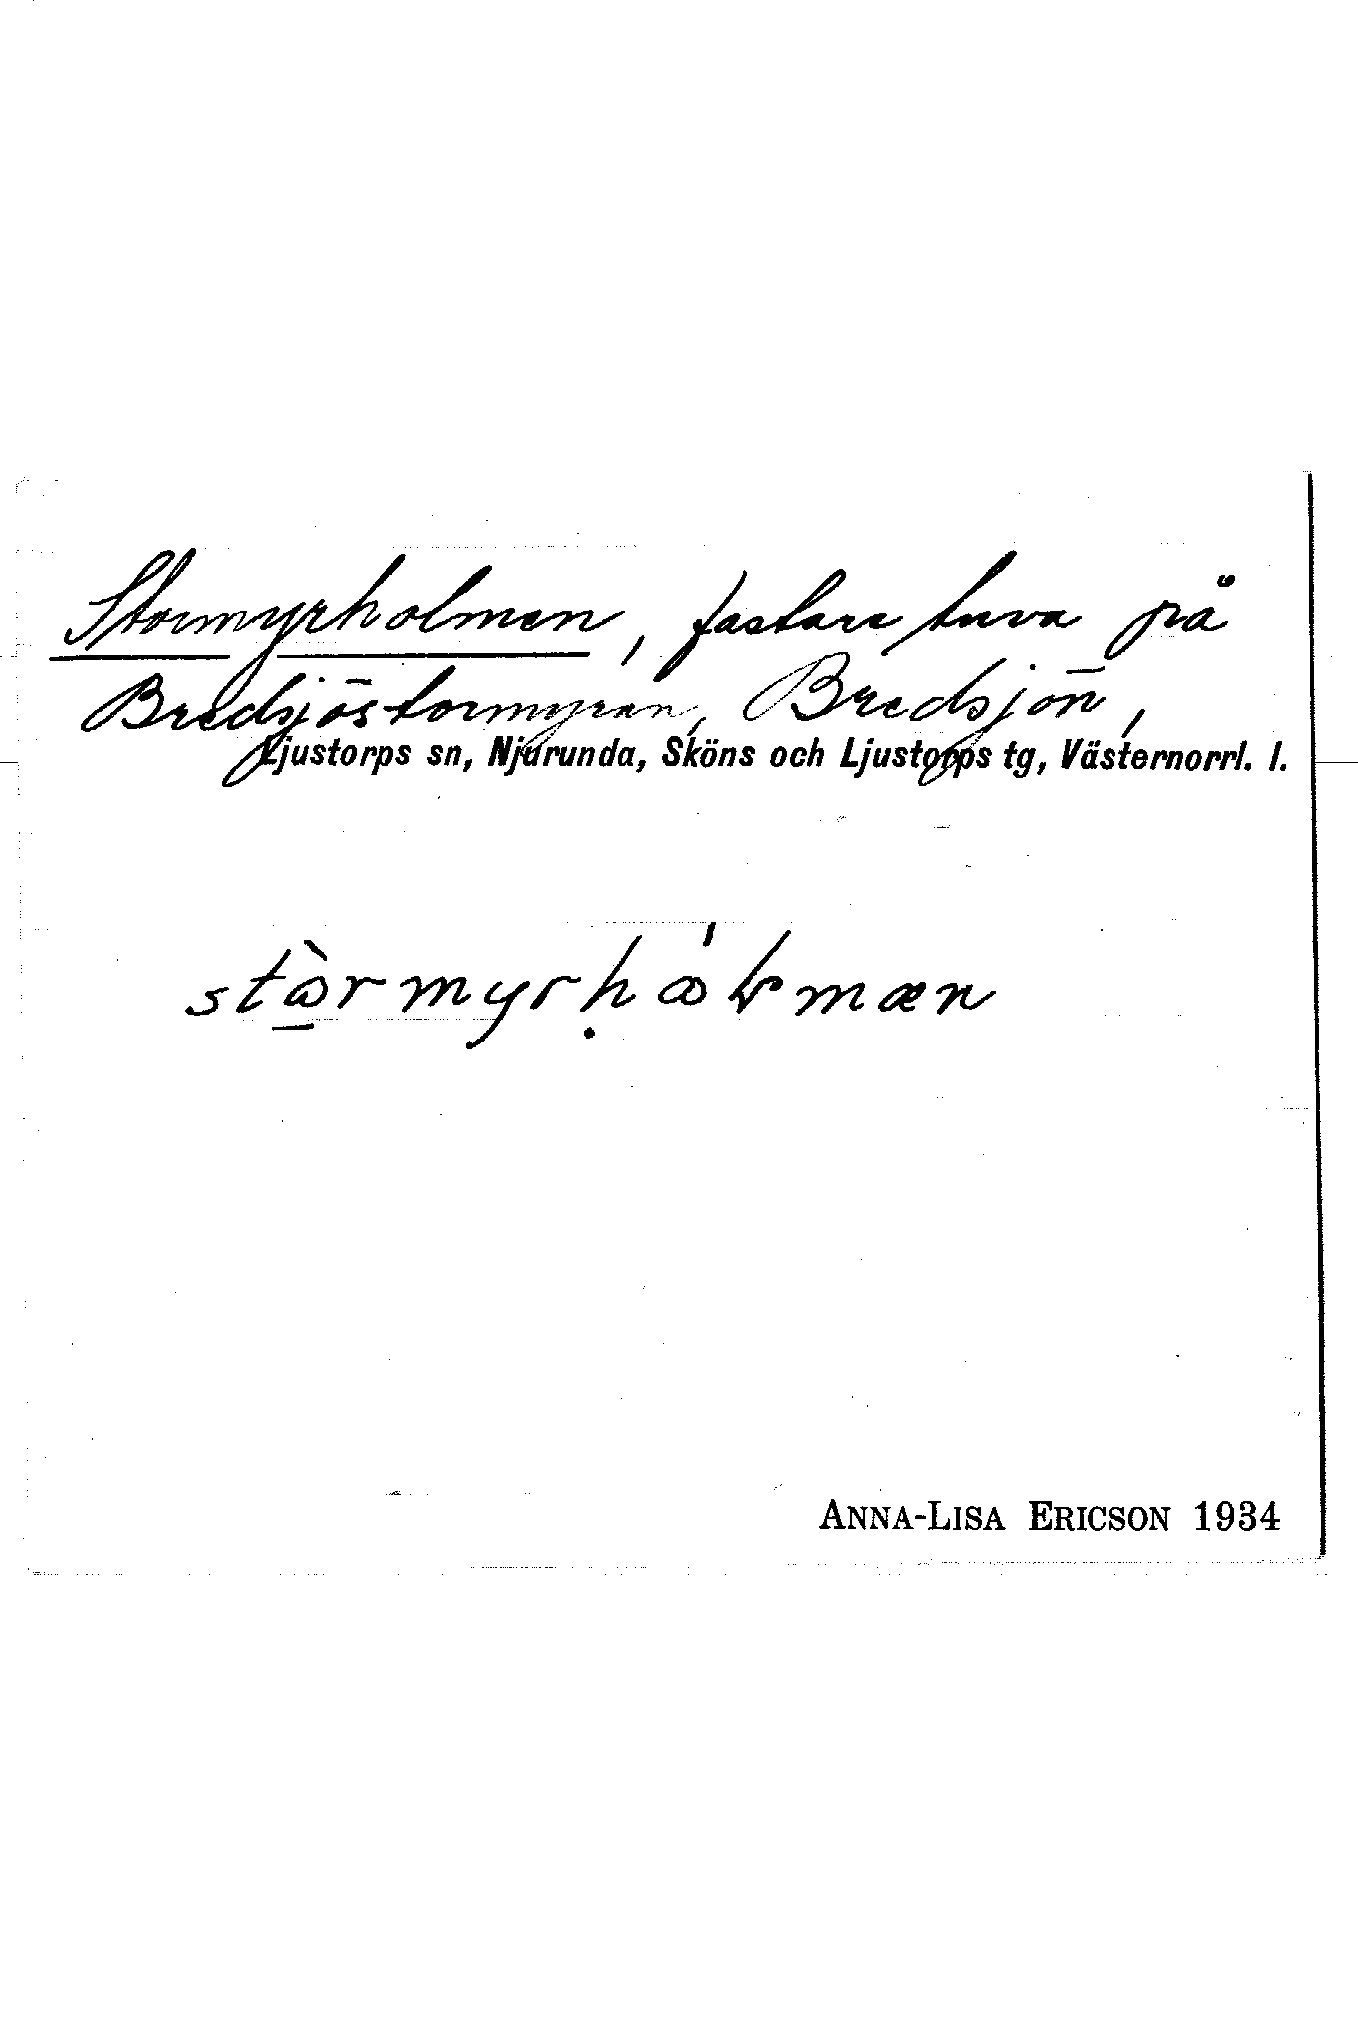 Stormyrholmen, fastare tuva på
Bredsjöstormyran, Bredsjön,
Ljustorps sn, Njurunda, Sköns och Ljustorps tg, Västernorrl. l.
ANNA-LISA ERICSON 1934